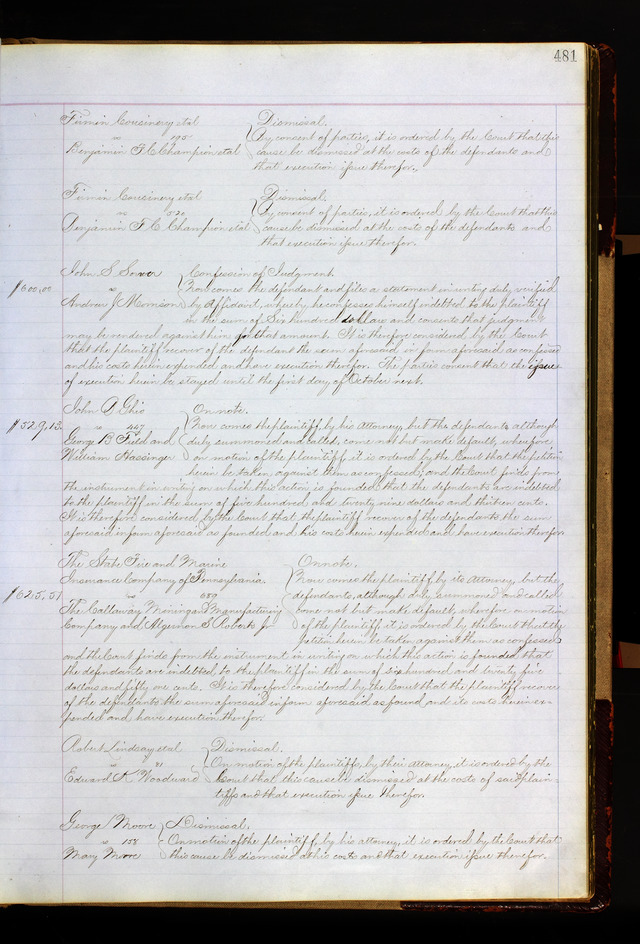 481
Firmin Cousinery et al Dismissal.
vs 195 By consent of parties, it is ordered by the Court that this
Benjamin F. C. Champion et al cause be dismissed at the costs of the defendants and
that execution issue therefor.
Firmin Cousinery et al Dismissal.
vs By consent of parties, it is ordered by the Court that this
Benjamin F. C. Champion et al cause be dismissed at the costs of the defendants and
that execution issue therefor.
John S. Confession of Judgment
$600,00 vs Now comes the defendant and files a statement in writing duly verified
Andrew J. Morrison by Affidavit, whereby he confesses himself indebted to the Plaintiff
in the sum of Six hundred dollars and consents that judgment
may be rendered against him for that amount. It is therefore considered by the Court
that the plaintiff recover of the defendant the sum aforesaid in form aforesaid as confessed
and his costs herein expended and have execution therefor. The parties consent that the issue
of execution herein be stayed until the first day of October next.
John A Ghio On note.
$529,13 vs 447 Now comes the plaintiff by his Attorney, but the defendants although
George B Field and duly summoned and called, come not but make default, wherefore
William Hassinger on motion of the plaintiff it is ordered by the Court that the petition
herein be taken, against them as confessed; and the Court finds from
the instrument in writing on which this action is founded, that the defendants are indebted
to the plaintiff in the sum of five hundred and twenty nine dollars and thirteen cents.
It is therefore considered by the Court that the plaintiff recover of the defendants the sum
aforesaid in form aforesaid as founded and his costs herein expended and have execution therefor.
The State Fire and Marine On note.
Insurance Company of Pennsylvania. Now comes the plaintiff by its Attorney, but the
$625,51 vs 659 defendants, although duly summoned and called
The Callaway Mining & Manufacturing come not but make default, wherefore on motion
Company and Algernon S. Roberts Jr of the plaintiff it is ordered by the Court that the
petition herein be taken against them as confessed
and the Court finds from the instrument in writing on which the action is founded that
the defendants are indebted to the plaintiff in the sum of six hundred and twenty five
dollars and fifty one cents. It is therefore considered by the Court that the plaintiff recover
of the defendants the sum aforesaid in form aforesaid as found and its costs herein ex-
pended and have execution therefor.
Robert Lindsay et al Dismissal.
vs 21 On motion of the plaintiffs, by their Attorney, it is ordered by the
Edward Woodward Court that this cause be dismissed at the costs of said plain-
tiffs and that execution issue therefor.
George Moore Dismissal.
vs 158 On motion of the plaintiff, by his attorney, it is ordered by the Court that
Mary Moore this cause be dismissed at his costs and that execution issue therefor.